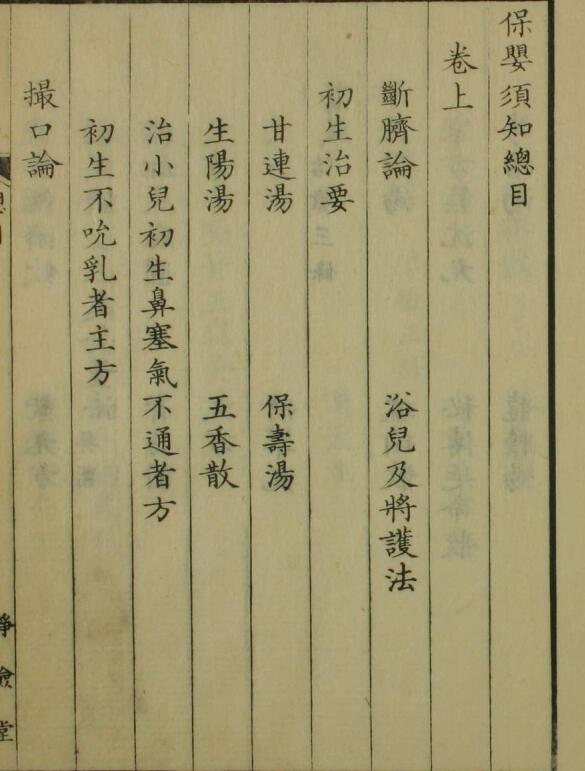 保嬰須知總目
卷上
斷臍論 浴兒及將護法
初生治要
甘連湯 保壽湯
生陽湯 五香散
治小兒初生鼻塞氣不通者方
初生不吮乳者主方
撮口論